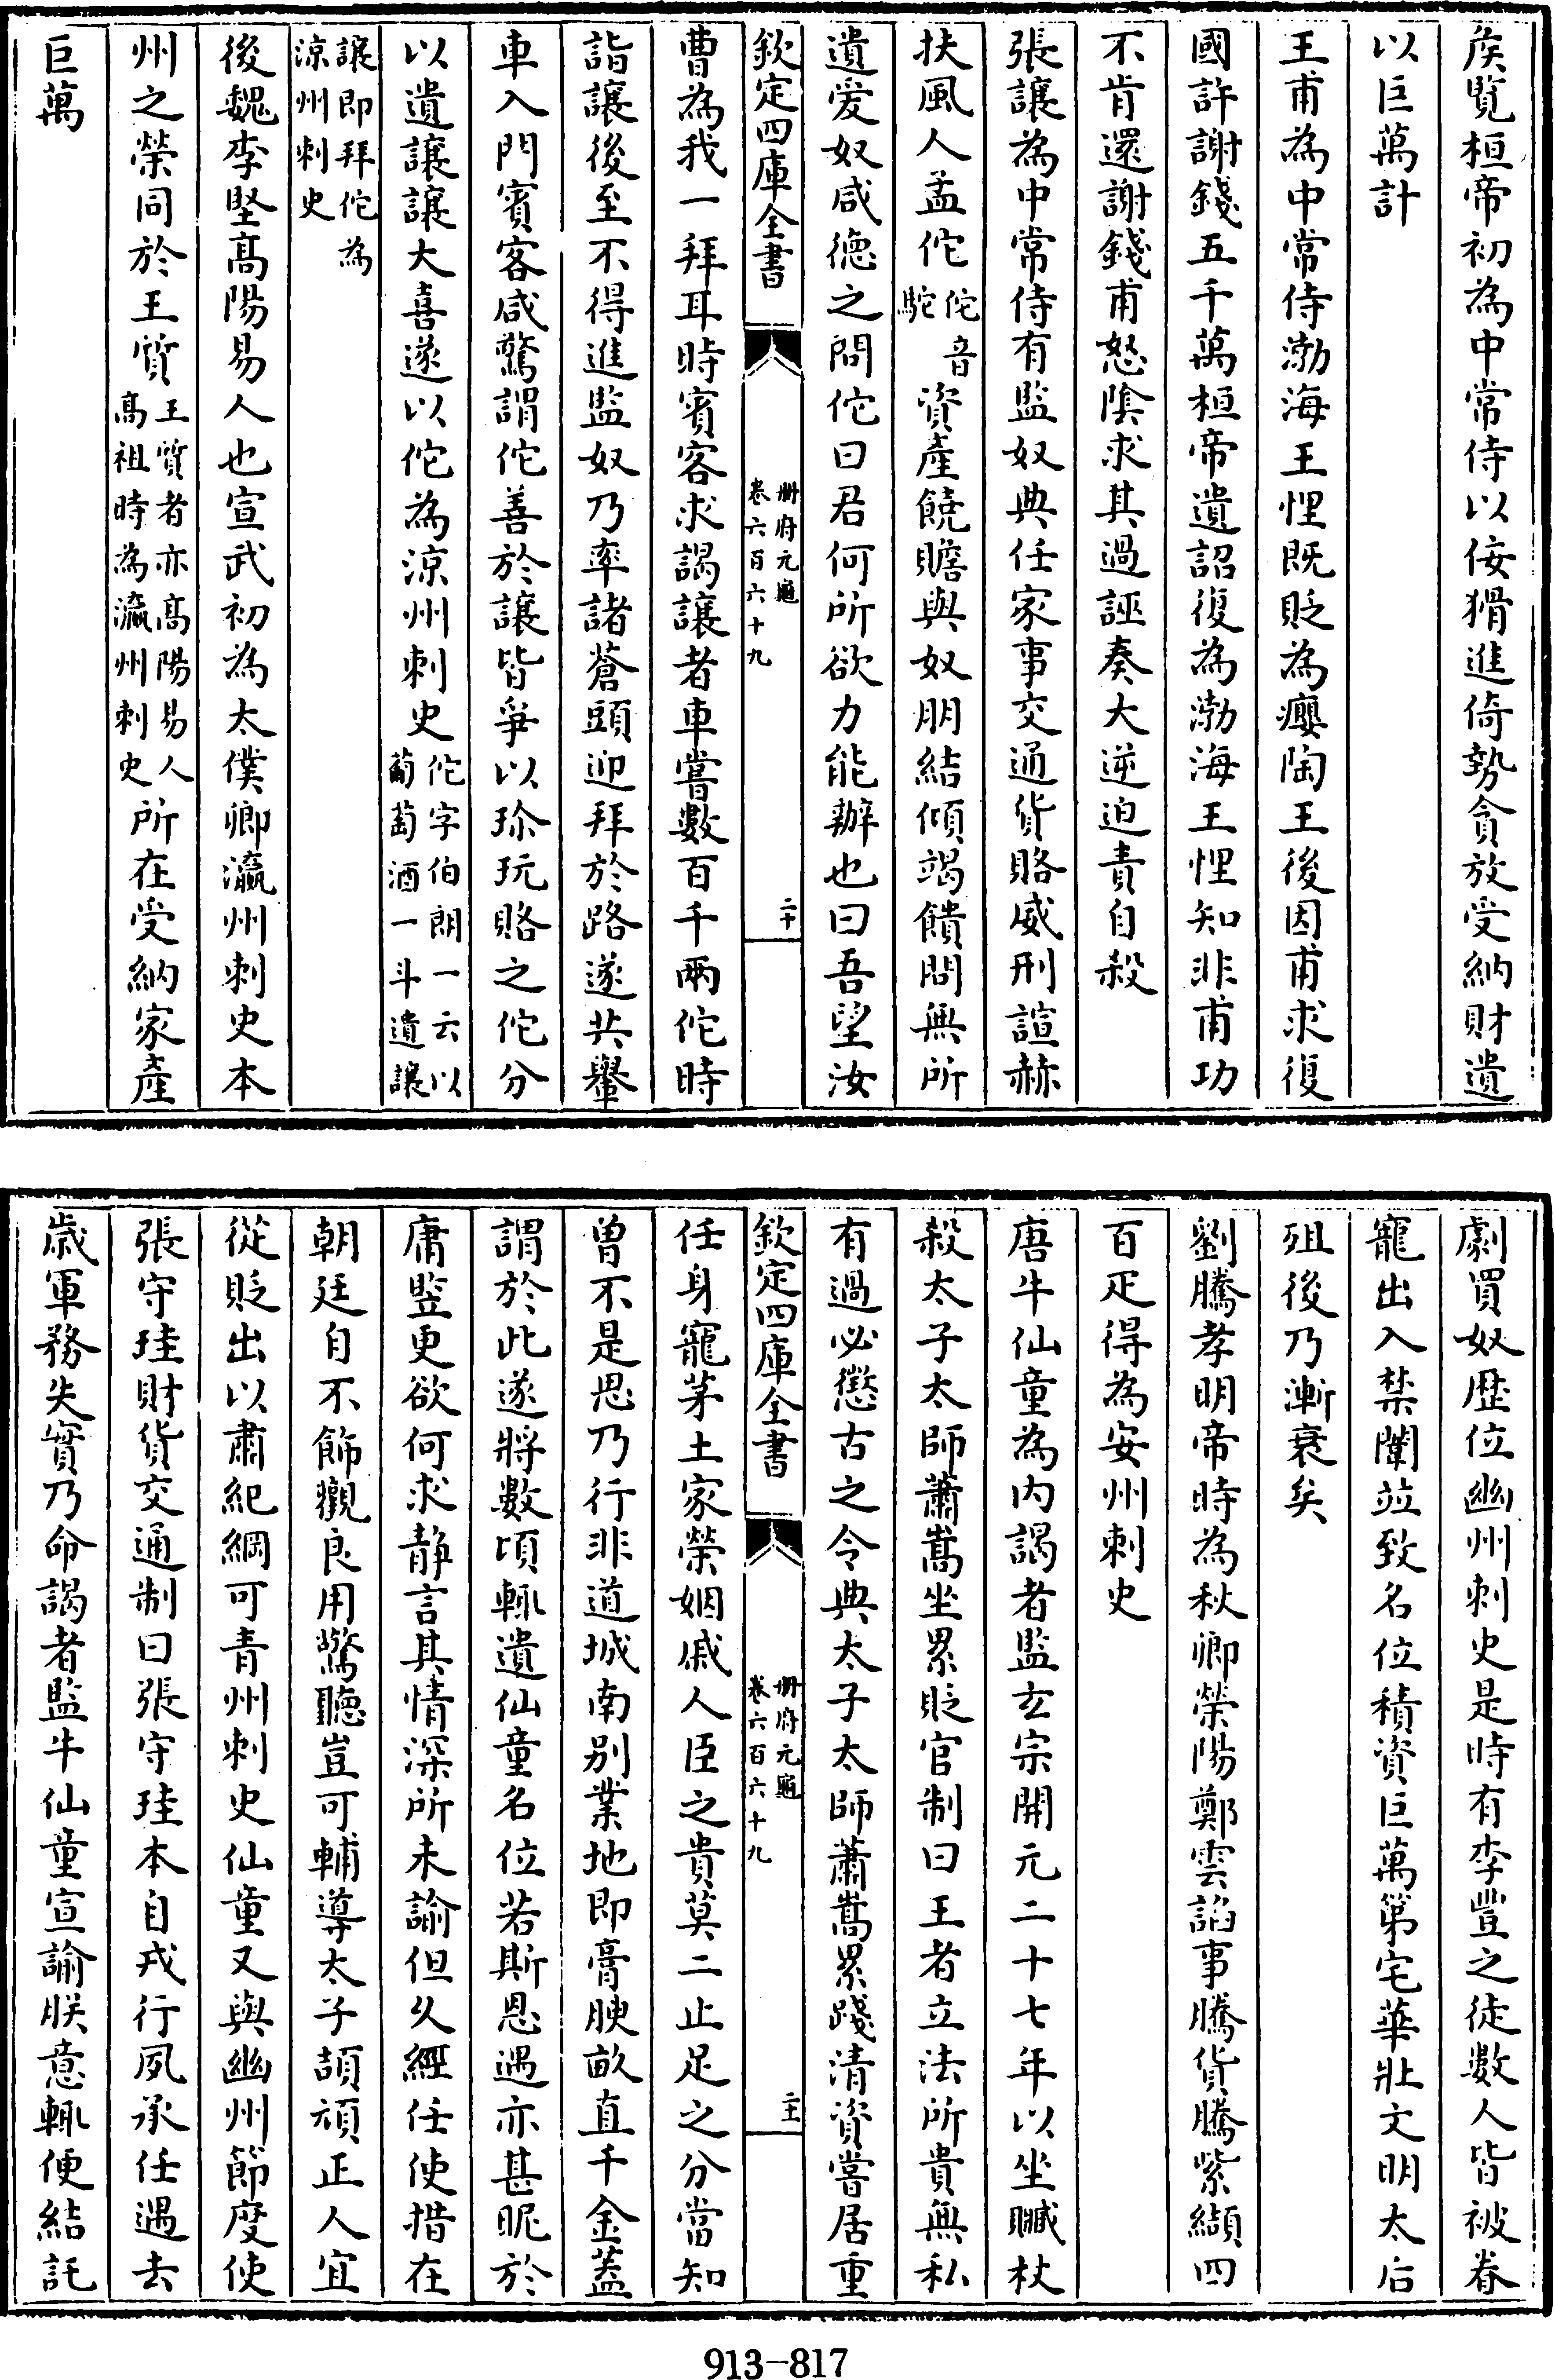 侯覽桓帝初為中常侍以佞猾進倚勢貪放受納財遺
以巨萬計
王甫為中常侍渤海王悝既貶為癭陶王後因甫求復
國許謝錢五千萬桓帝遺詔復為渤海王悝知非甫功
不肯還謝錢甫怒陰求其過誣奏大逆迫責自殺
張讓為中常侍有監奴典任家事交通貨賂威刑諠赫
扶風人孟佗佗音駝資產饒贍與奴朋結傾竭饋問無所
遺爱奴咸徳之問佗曰君何所欲力能辦也曰吾望汝
欽定四庫全書
冊府元龜
卷六百六十九
二十
曹為我一拜耳時賓客求謁讓者車嘗數百千兩佗時
詣讓後至不得進監奴乃率諸蒼頭迎拜於路遂共轝
車入門賓客咸驚謂佗善於讓皆爭以珍玩賂之佗分
以遺讓讓大喜遂以佗為涼州刺史佗字伯朗一云以葡萄酒一斗遺讓
讓即拜佗為涼州刺史
後魏李堅髙陽易人也宣武初為太僕卿瀛州刺史本
州之榮同於王質王質者亦髙陽易人髙祖時為瀛州刺史所在受納家產
巨萬
劇買奴歴位幽州刺史是時有李豐之徒數人皆被眷
寵出入禁闈竝致名位積資巨萬第宅華壯文明太后
殂後乃漸衰矣
劉騰孝明帝時為秋卿榮陽鄭雲諂事騰貨騰紫纈四
百疋得為安州刺史
唐牛仙童為内謁者監𤣥宗開元二十七年以坐贓杖
殺太子太師蕭嵩坐累貶官制曰王者立法所貴無私
有過必懲古之令典太子太師蕭嵩累踐清資嘗居重
欽定四庫全書
冊府元龜
卷六百六十九
二十一
任身寵茅土家榮姻戚人臣之貴莫二止足之分當知
曽不是思乃行非道城南别業地即膏腴畝直千金蓋
謂於此遂將數頃輒遺仙童名位若斯恩遇亦甚昵於
庸豎更欲何求静言其情深所未諭但久經任使措在
朝廷自不飾觀良用驚聽豈可輔導太子頡頏正人宜
從貶出以肅紀綱可青州刺史仙童又與幽州節度使
張守珪財貨交通制曰張守珪本自戎行夙承任遇去
歳軍務失實乃命謁者監牛仙童宣諭朕意輒便結託
913-817